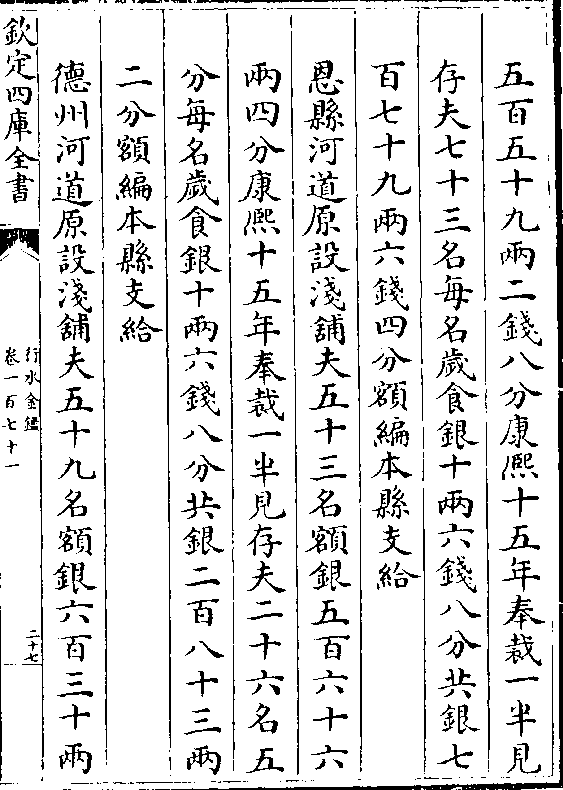 五百五十九兩二錢八分康熙十五年奉裁一半見
存夫七十三名每名歲食銀十兩六錢八分共銀七
百七十九兩六錢四分額編本縣支給
恩縣河道原設淺舖夫五十三名額銀五百六十六
兩四分康熙十五年奉裁一半見存夫二十六名五
分每名歲食銀十兩六錢八分共銀二百八十三兩
二分額編本縣支給
德州河道原設淺舖夫五十九名額銀六百三十兩
欽定四庫全書
行水金鑑
卷一百七十一
二十七